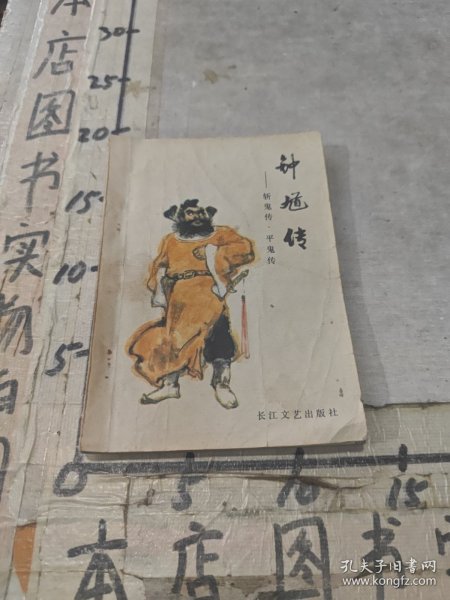 本店图书实物拍
30-
25-
20-
15-
10-
5-
0
5
10
15
钟馗传
——斩鬼传·平鬼传
长江文艺出版社
本店图书实
孔夫子旧书网
www.kongfz.com